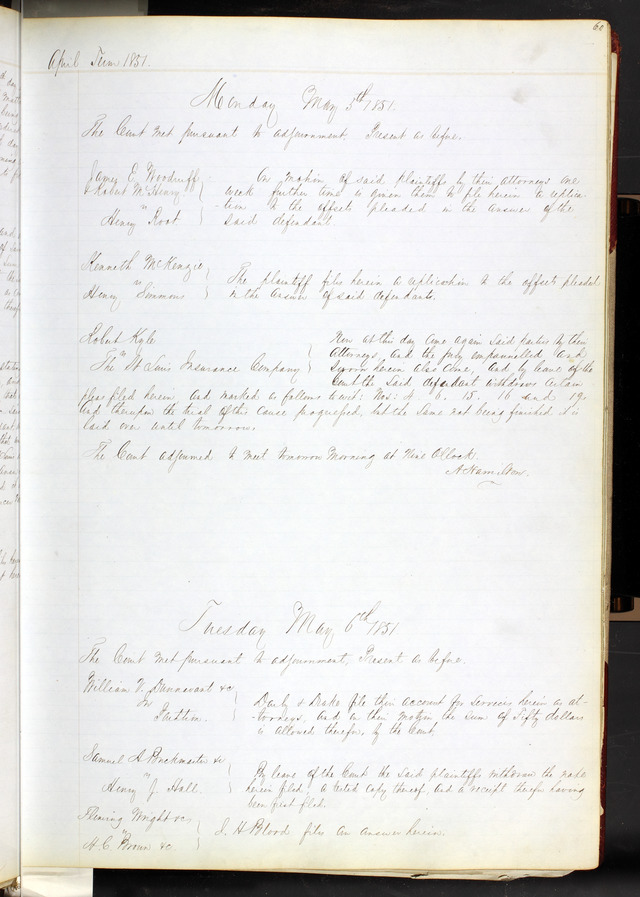 60
April Term 1851.
Monday May 5th 1851.
The Court met pursuant to adjournment. Present as before.
James E. Woodruff
& Robert McHenry
vs
Henry Root
On motion of said plaintiffs by their attorneys one
week further time is given them to file herein a replica-
tion to the offsets pleaded in the answer of the
said defendant
Kenneth McKenzie
vs
Henry Simmons
The plaintiff files herein a replication to the offset pleaded
in the answer of said defendants.
Robert Kyle
vs
The St Louis Insurance Company
Now at this day come again said parties by their
Attorneys, and the jury empannelled and
sworn herein also come, and by leave of the
Court the said defendant withdraws certain
pleas filed herein and marked as follows to wit: Nos: 4. 6. 15. 16 and 19.
And thereupon the trial of this cause progressed, but the same not being finished it is
laid over until tomorrow.
The Court adjourned to meet tomorrow morning at Nine O'Clock.
A. Hamilton.
Tuesday May 6th 1851
The Court met pursuant to adjournment, Present as before.
William V. Dunnavant &c
Darby & Drake file their account for services herein as at-
torneys, and on their motion the sum of Fifty dollars
is allowed therefor, by the Court.
Samuel A Buckmaster &c
vs
Henry J. Hall.
By leave of the Court the said plaintiffs withdraw the note
herein filed. A certified copy thereof, and a receipt therefor having
been first filed.
Fleming Wright &c
vs
H. C. Brown &c
J. H Blood files an answer herein.